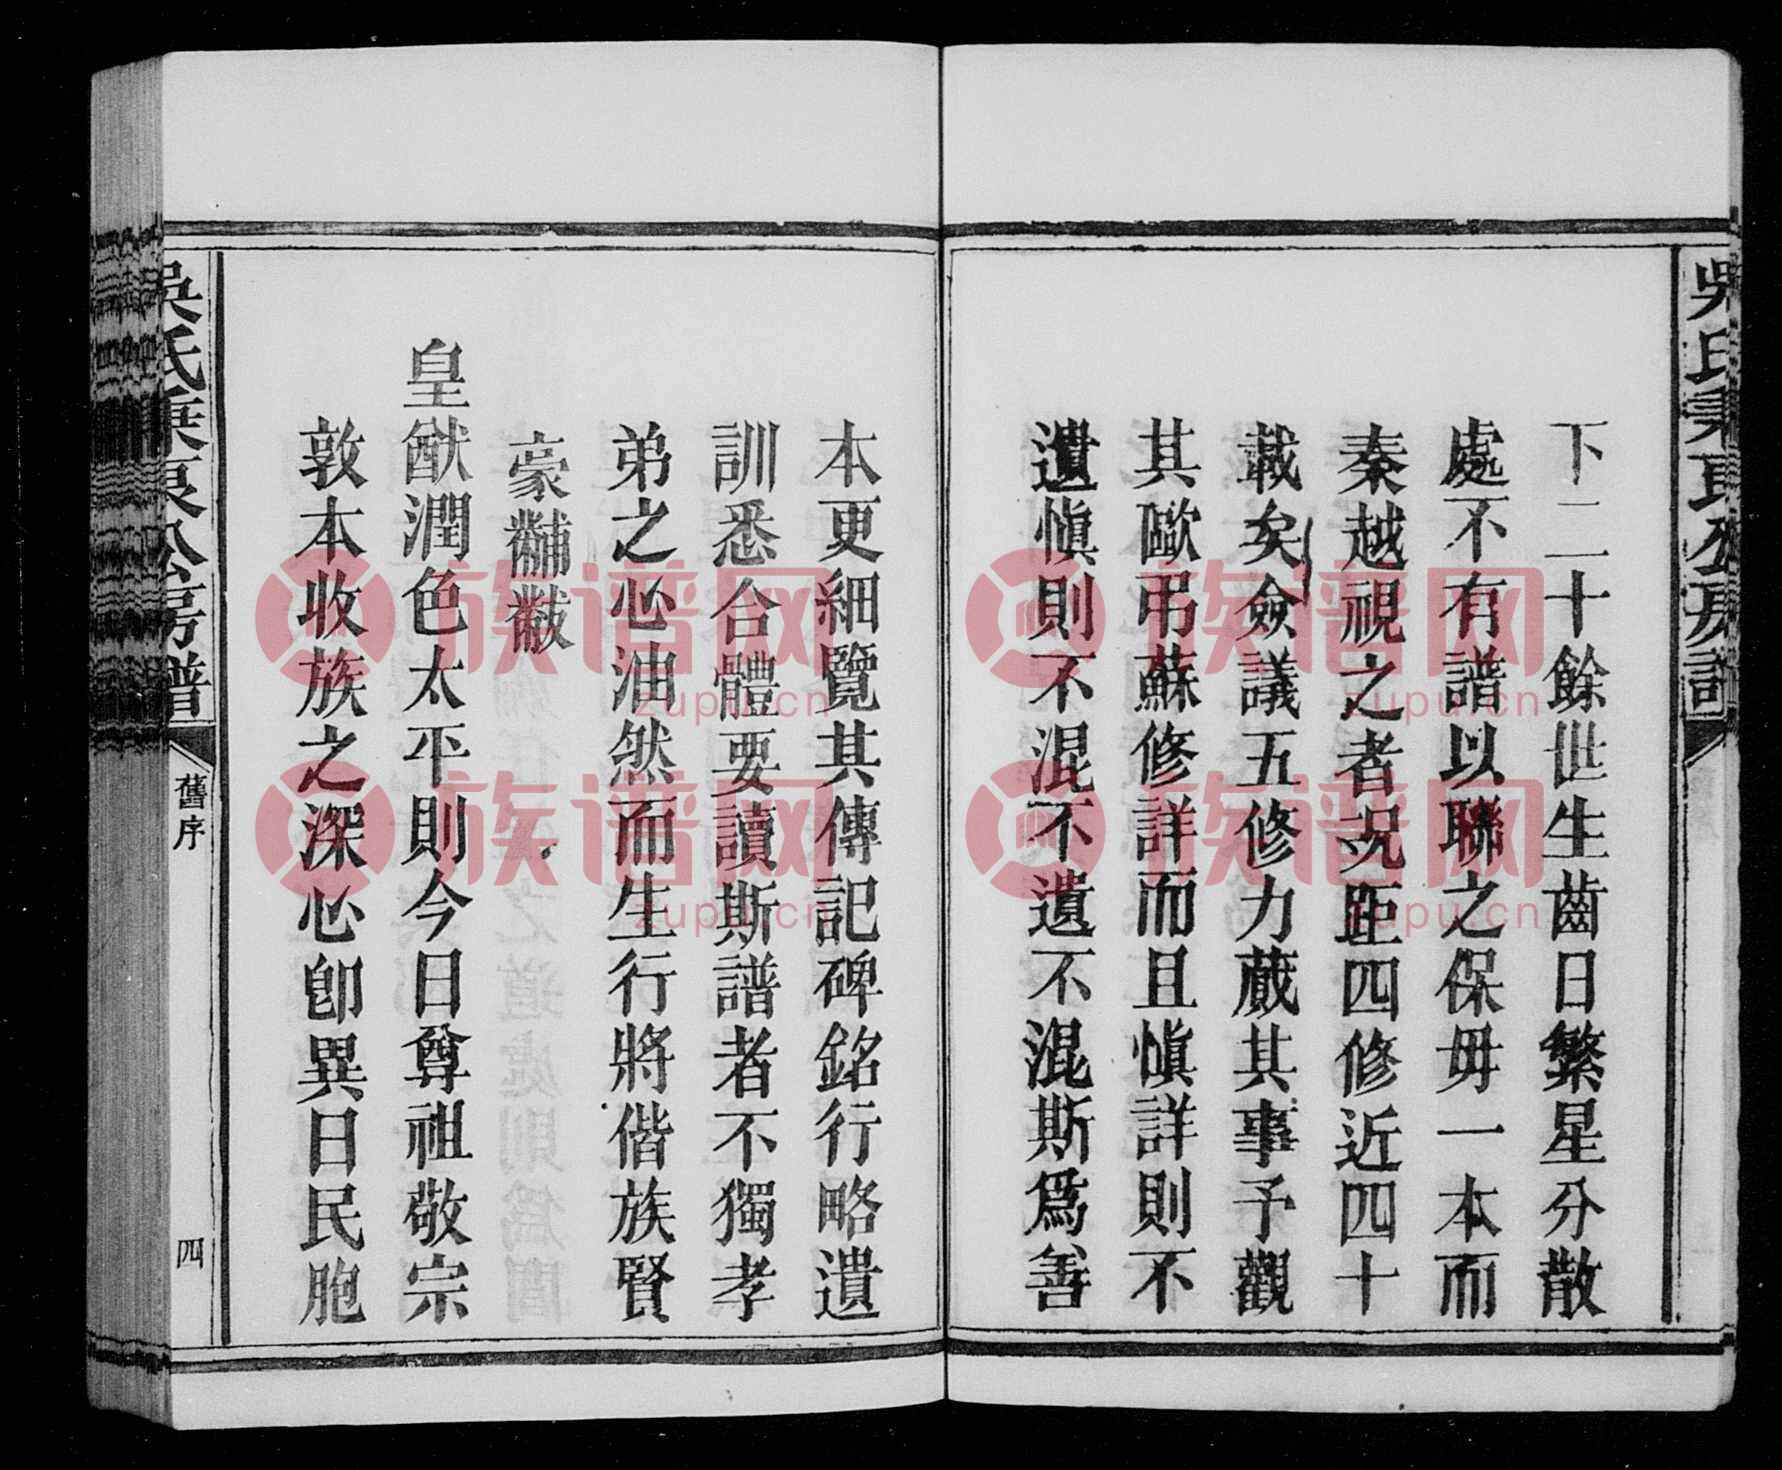 下二十餘世生齒日繁星分散
處不有譜以聯之保毋一本而
秦越視之者況距四修近四十
載矣僉議五修力蕆其事予觀
其歐弔蘇修詳而且愼詳則不
遺愼則不混不遺不混斯爲善
本更細覽其傳記碑銘行略遺
訓悉合體要讀斯譜者不獨孝
弟之心油然而生行將偕族賢
豪黼黻
皇猷潤色太平則今日尊祖敬宗
敦本收族之深心卽異日民胞
吳氏秉良公房譜
舊序
四
族谱网
zupu.cn
族谱网
zupu.cn
族谱网
zupu.cn
族谱网
zupu.cn